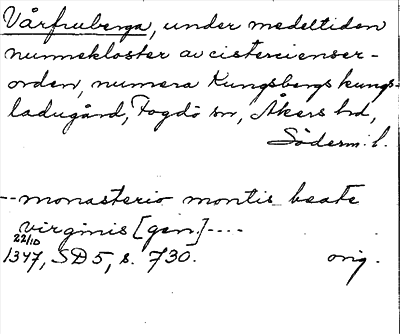 Vårfruberga, under medeltiden
nunnekloster av cistercienser-
orden, numera Kungsbergs kungs-
ladugård, Fogdö sn, Åkers hd,
Söderm. l.
--monasterio montis beate
virginis [gen.]----
22/10
1347, SD 5, s. 730. orig.